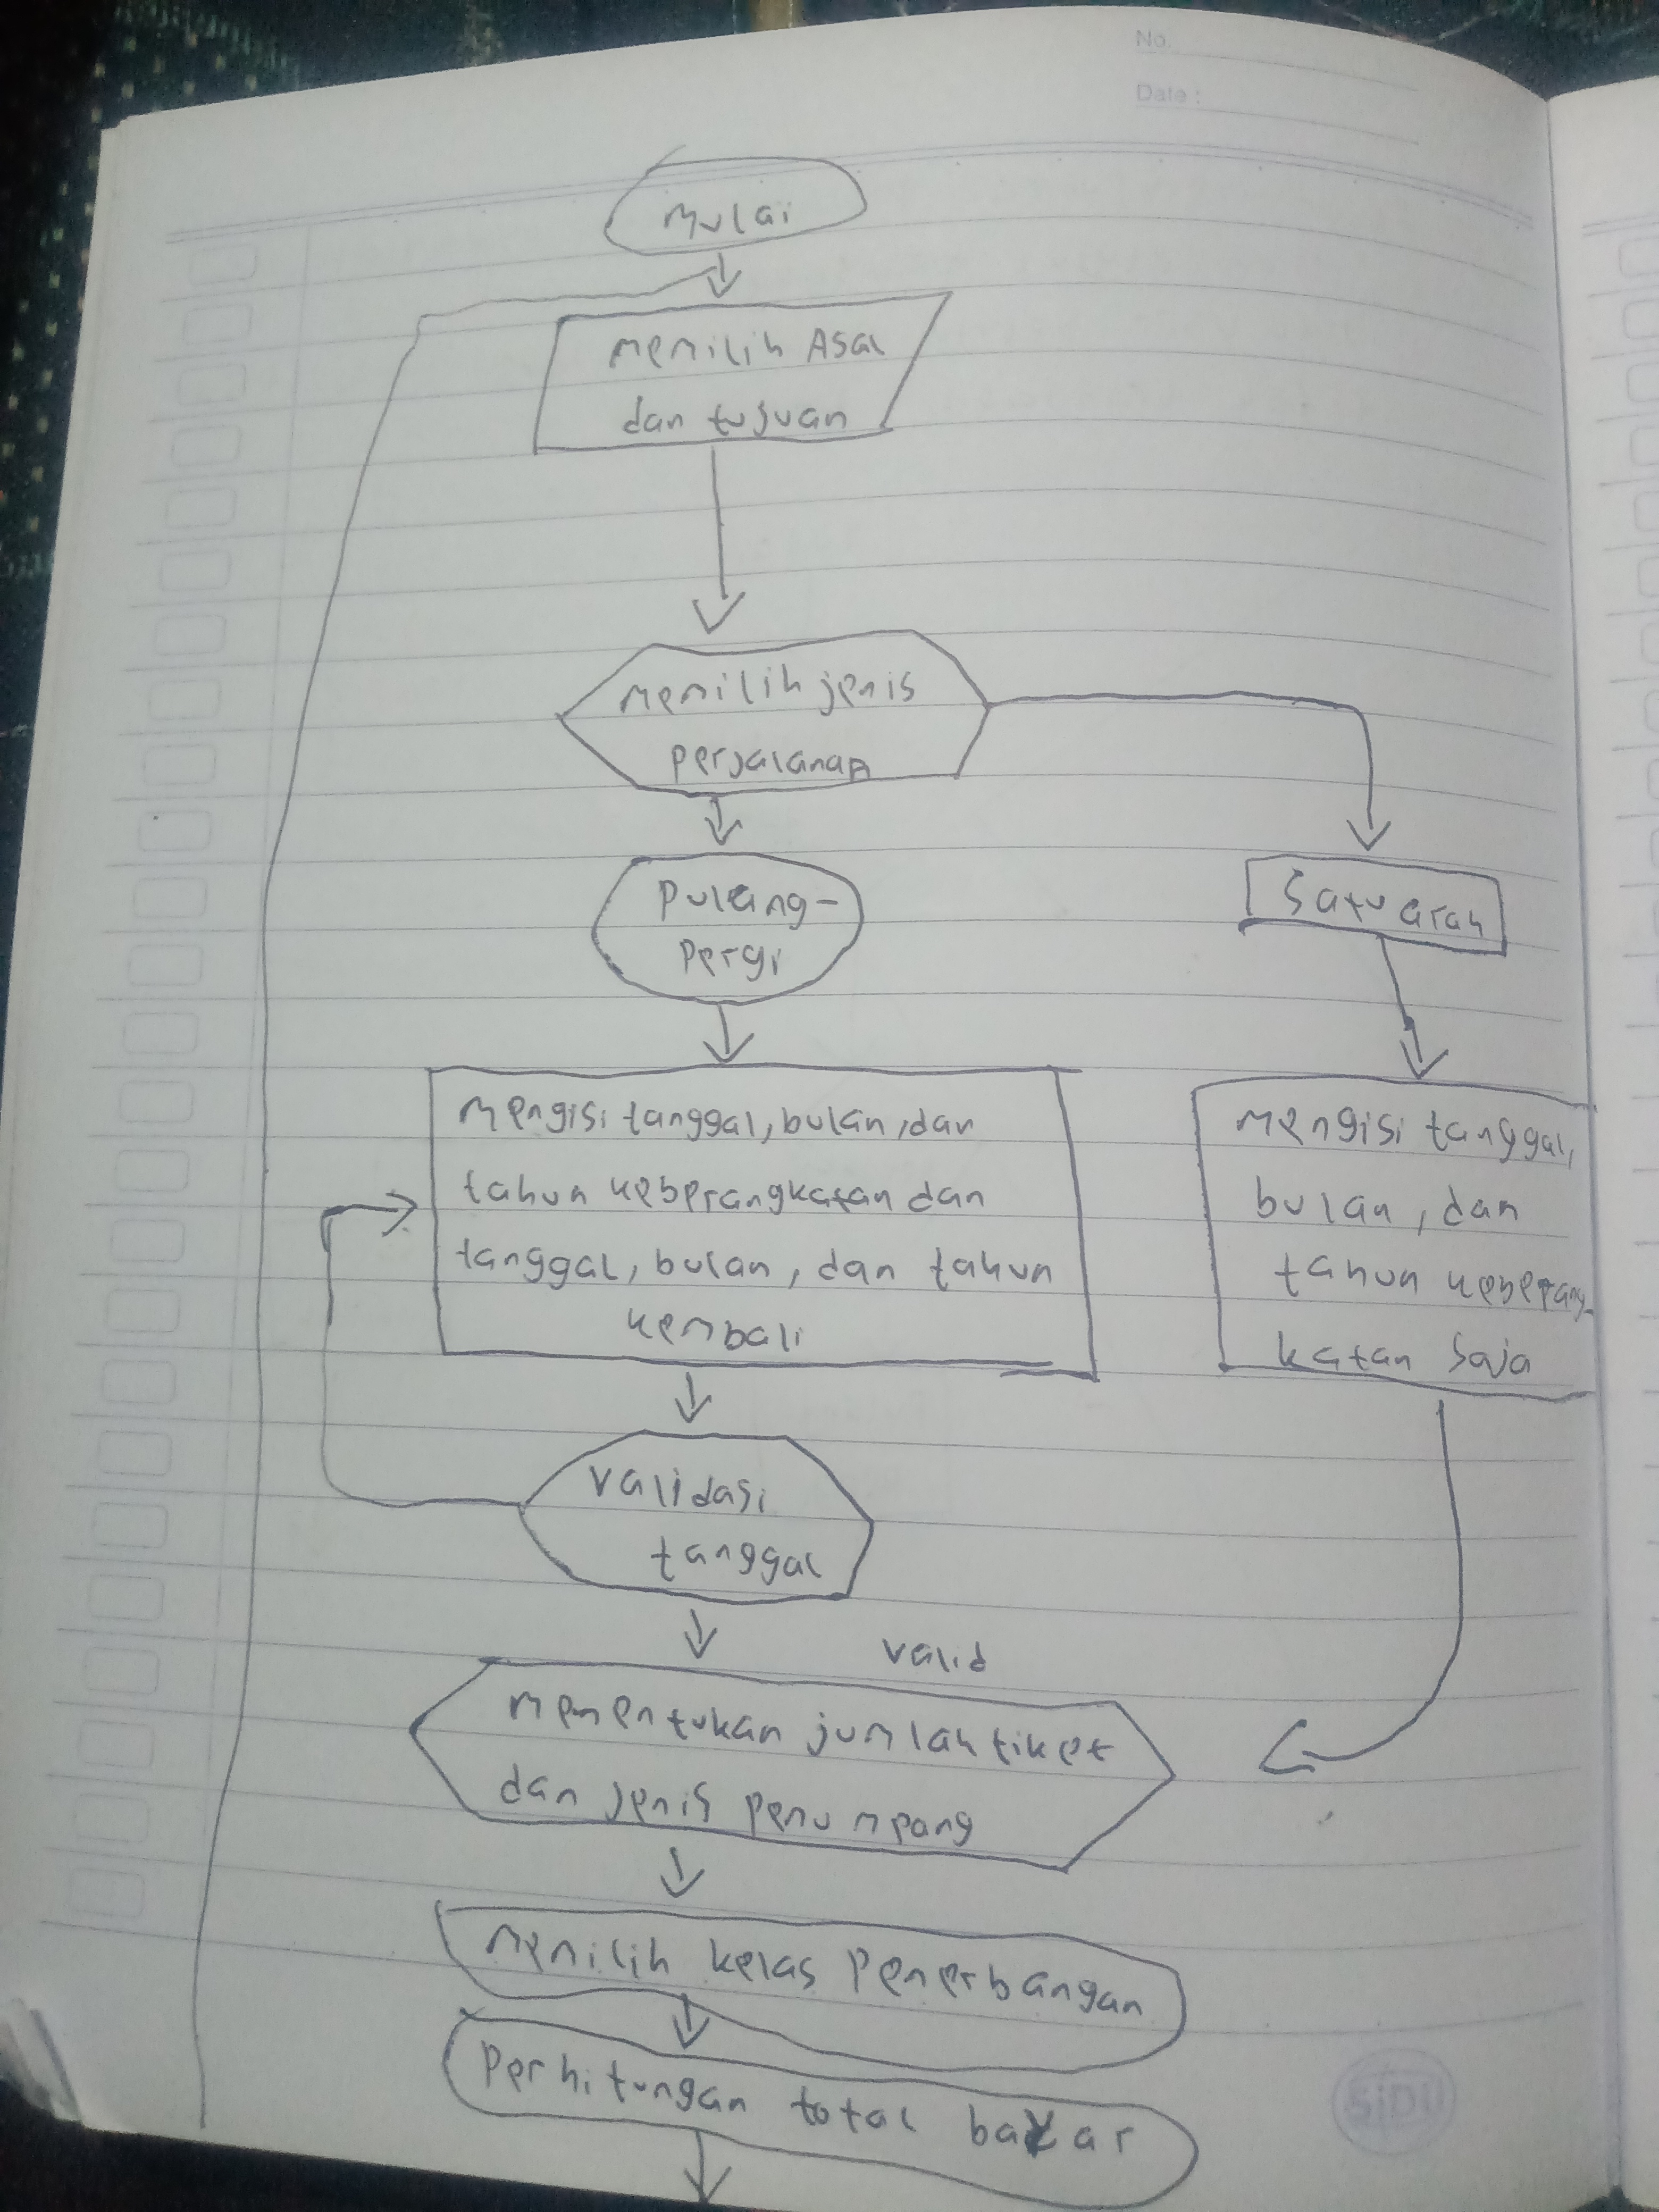 No.
Date :
Mulai
Memilih Asal
dan tujuan
Memilih jenis
perjalanan
Pulang-
Pergi
Satu arah
Mengisi tanggal, bulan, dan
tahun keberangkatan dan
tanggal, bulan, dan tahun
kembali
Mengisi tanggal,
bulan, dan
tahun keberang-
katan saja
Validasi
tanggal
Valid
Menentukan jumlah tiket
dan jenis penumpang
Memilih kelas Penerbangan
Perhitungan total bayar
SiDU